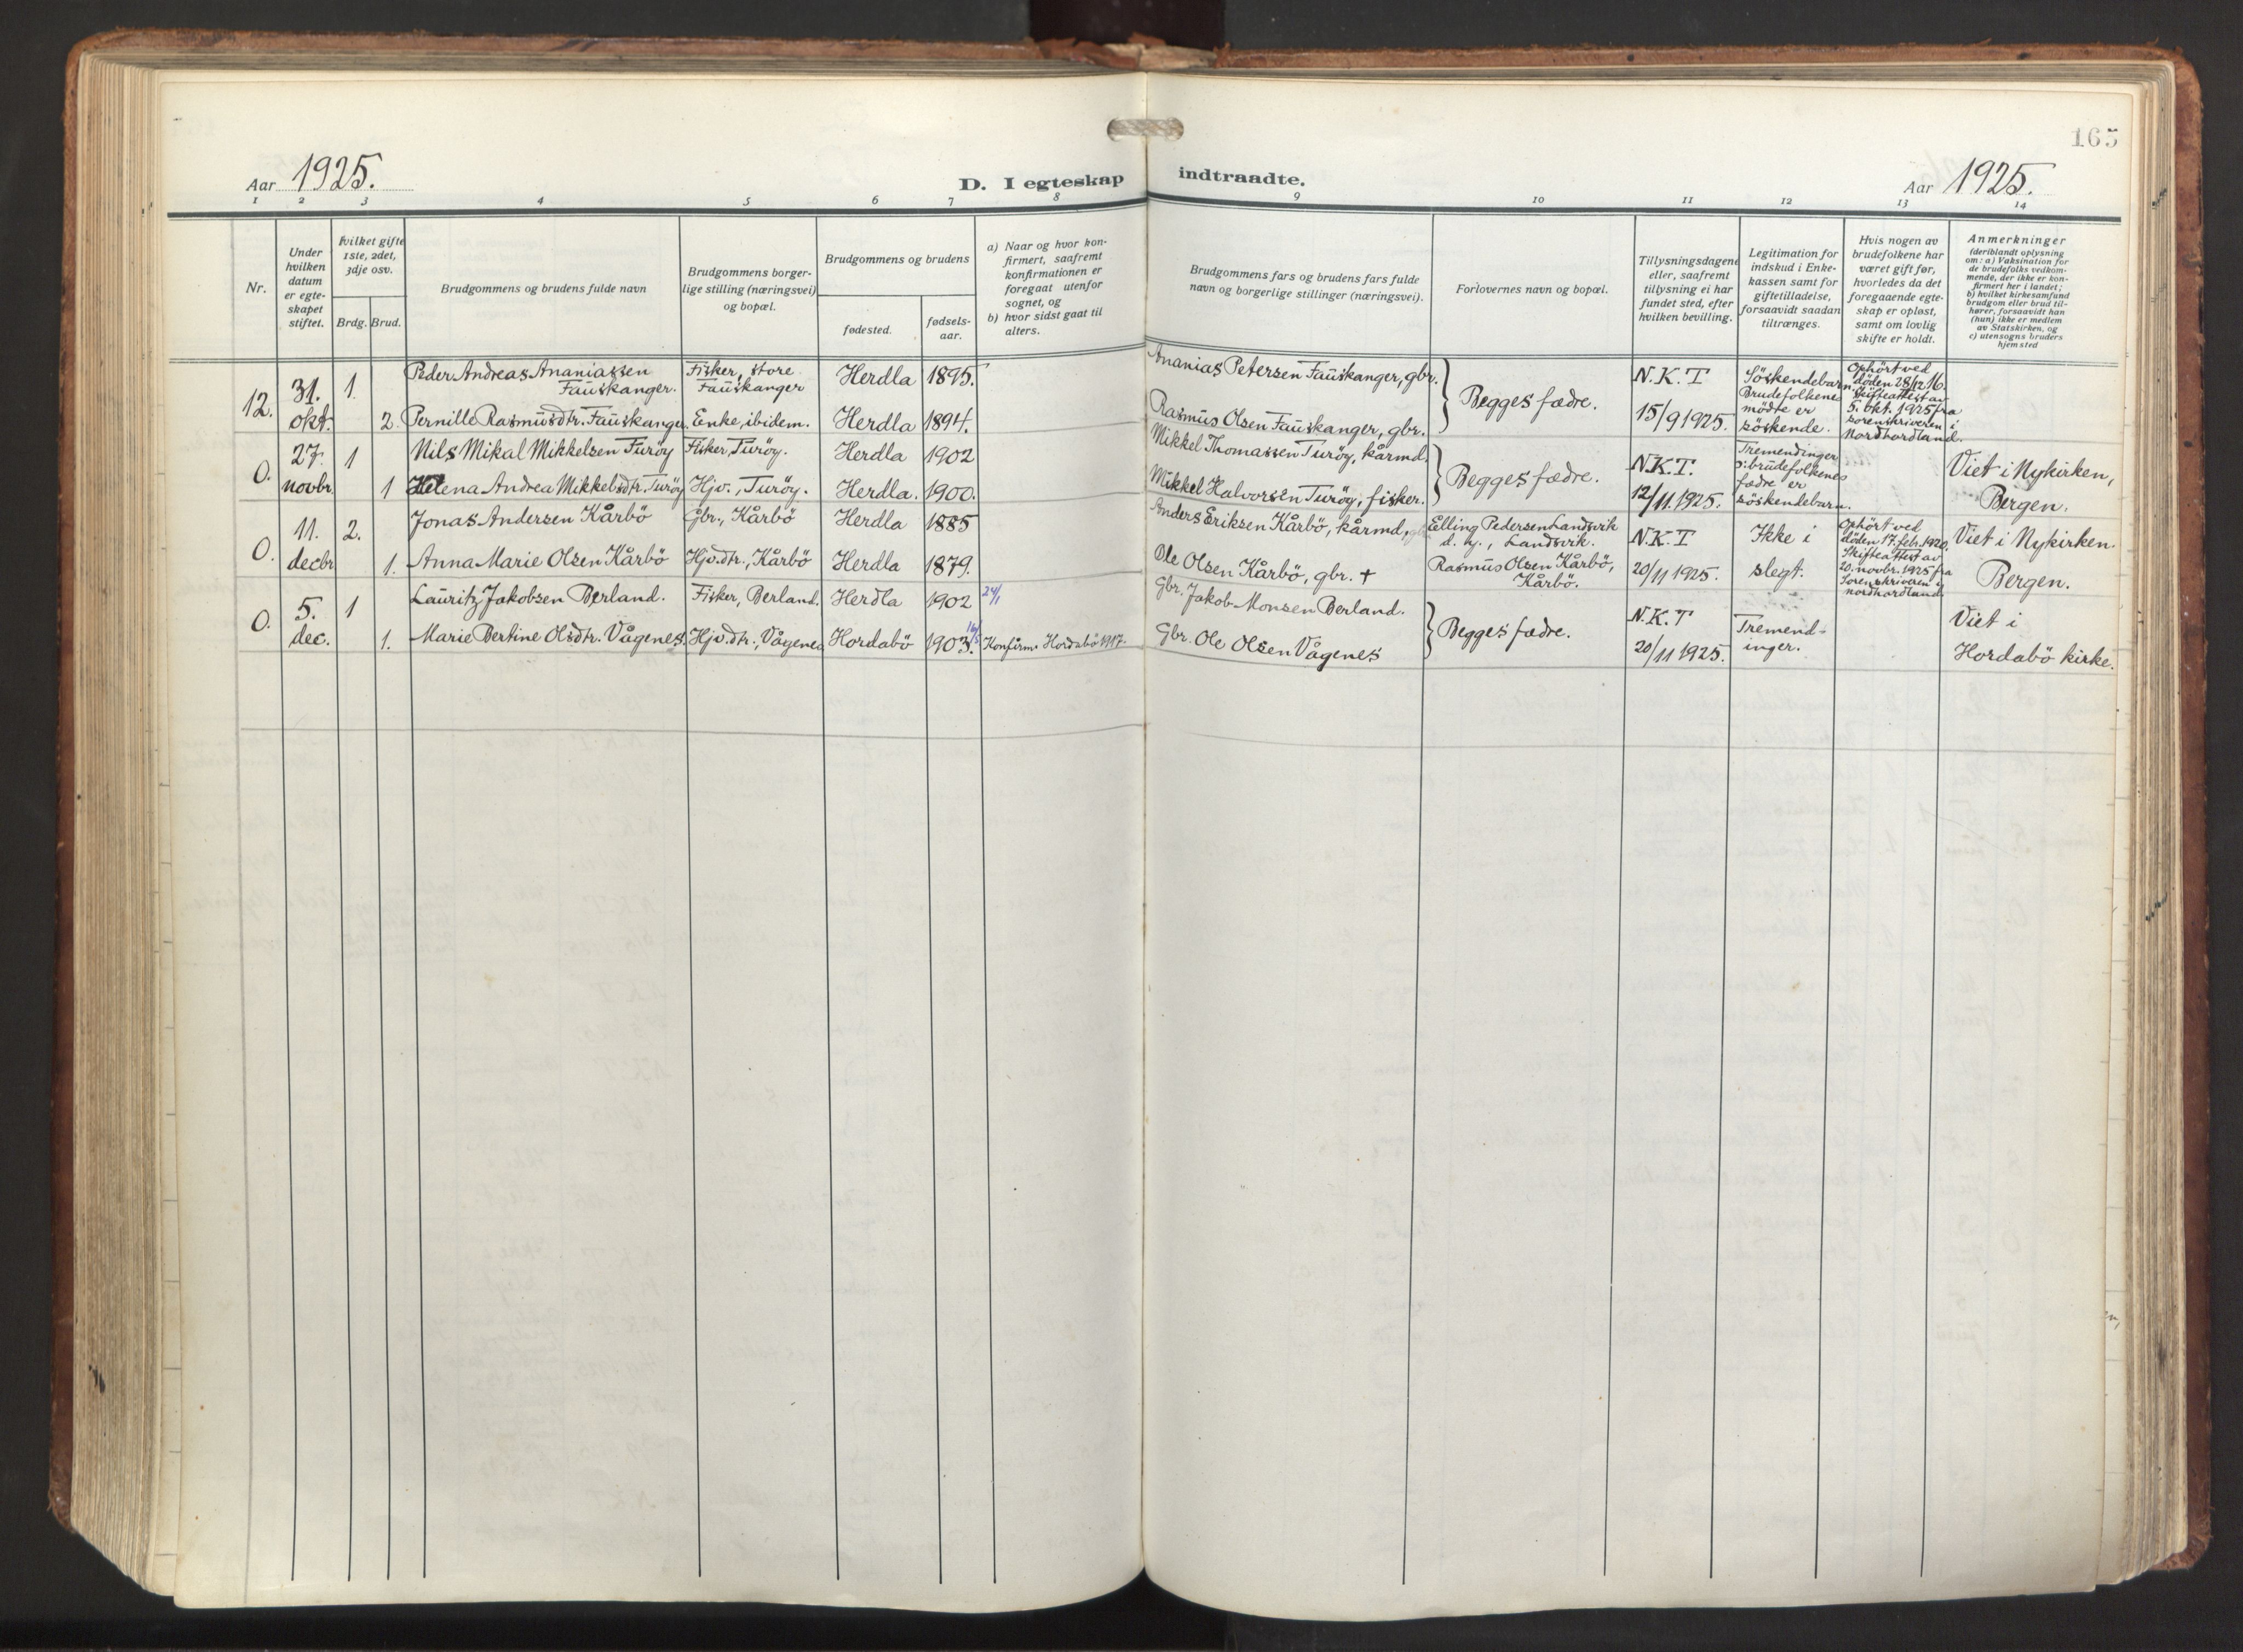 165
Aar 1925.
D. I egteskap indtraadte.
Aar 1925.
1 2 3 4 5 6 7 8 9 10 11 12 13 14
Nr.
Under
hvilken
datum
er egte-
skapet
stiftet.
Hvilket gifte
1ste, 2det,
3dje osv.
Brdg. Brud.
Brudgommens og brudens fulde navn
Brudgommens borger-
lige stilling (næringsvei)
og bopæl.
Brudgommens og brudens
fødested.
fødsels-
aar.
a) Naar og hvor kon-
firmert, saafremt
konfirmationen er
foregaat utenfor
sognet, og
b) hvor sidst gaat til
alters.
Brudgommens fars og brudens fars fulde
navn og borgerlige stillinger (næringsvei).
Forlovernes navn og bopæl.
Tillysningsdagene
eller, saafremt
tillysning ei har
fundet sted, efter
hvilken bevilling.
Legitimation for
indskud i Enke-
kassen samt for
giftetilladelse,
forsaavidt saadan
tiltrænges.
Hvis nogen av
brudefolkene har
været gift før,
hvorledes da det
foregaaende egte-
skap er opløst,
samt om lovlig
skifte er holdt.
Anmerkninger
(deriblandt oplysning
om: a) Vaksination for
de brudefolks vedkom-
mende, der ikke er kon-
firmert her i landet;
b) hvilket kirkesamfund
brudgom eller brud til-
hører, forsaavidt han
(hun) ikke er medlem
av Statskirken, og
c) utensogns bruders
hjemsted
12.
31.
okt.
1.
2.
Peder Andreas Ananiassen
Fauskanger.
Pernille Rasmusdtr. Fauskanger
Fisker, store
Fauskanger
Enke, ibidem.
Herdla 1895.
Herdla 1894.
Ananias Petersen Fauskanger, gbr.
Rasmus Olsen Fauskanger, gbr.
Begges fædre.
N.K.T
15/9 1925.
Söskendebarn.
Brudefolkenes
mödre er
söskende.
Ophört ved
döden 28/12 16.
Skifteattest av
5. okt. 1925 fra
sorenskriveren i
Nordhordland.
0.
27.
novbr.
1
1
Nils Mikal Mikkelsen Turöy
Helena Andrea Mikkelsdtr. Turöy
Fisker, Turöy.
Hjv., Turöy.
Herdla 1902
Herdla. 1900.
Mikkel Thomassen Turöy, kårmd.
Mikkel Halvorsen Turöy, fisker.
Begges fædre.
N.K.T.
12/11 1925.
Tremendinger
brudefolkenes
fædre er
söskendebarn.
Viet i Nykirken,
Bergen.
0.
11.
decbr
2.
1.
Jonas Andersen Kårbö
Anna Marie Olsen Kårbö
Gbr., Kårbö
Hjv.dtr., Kårbö
Herdla 1885
Herdla 1879.
Anders Eriksen Kårbö, kårmd.
Ole Olsen Kårbö, gbr. +
Elling Pedersen Landsvik
d. y., Landsvik.
Rasmus Olsen Kårbö,
Kårbö.
N.K.T
20/11 1925.
Ikke i
slegt.
Ophört ved
döden 17. feb. 1920.
Skifteattest av
20. novbr. 1925 fra
Sorenskriveren i
nordhordland.
Viet i Nykirken.
Bergen.
0.
5.
dec.
1
1.
Lauritz Jakobsen Berland.
Marie Bertine Olsdtr. Vågenes.
Fisker, Berland.
Hjv.dtr., Vågenes
Herdla 1902 24/1
Hordabö 1903. 16/5
Konfirm. Hordabö 1917.
Gbr. Jakob Monsen Berland.
Gbr. Ole Olsen Vågenes
Begges fædre.
N.K.T
20/11 1925.
Tremend-
inger.
Viet i
Hordabö kirke.